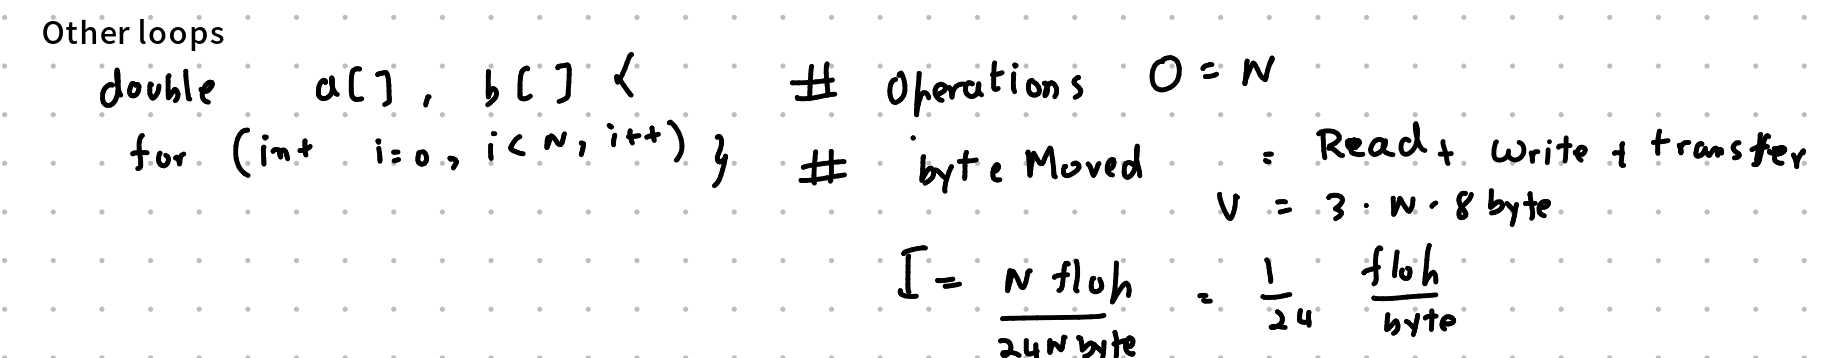 Other loops
double a[], b[] {
for (int i=0, i<N, i++) }
# Operations O = N
# byte Moved = Read + write + transfer
V = 3 · N · 8 byte
I = N flop / 24N byte = 1/24 flop/byte